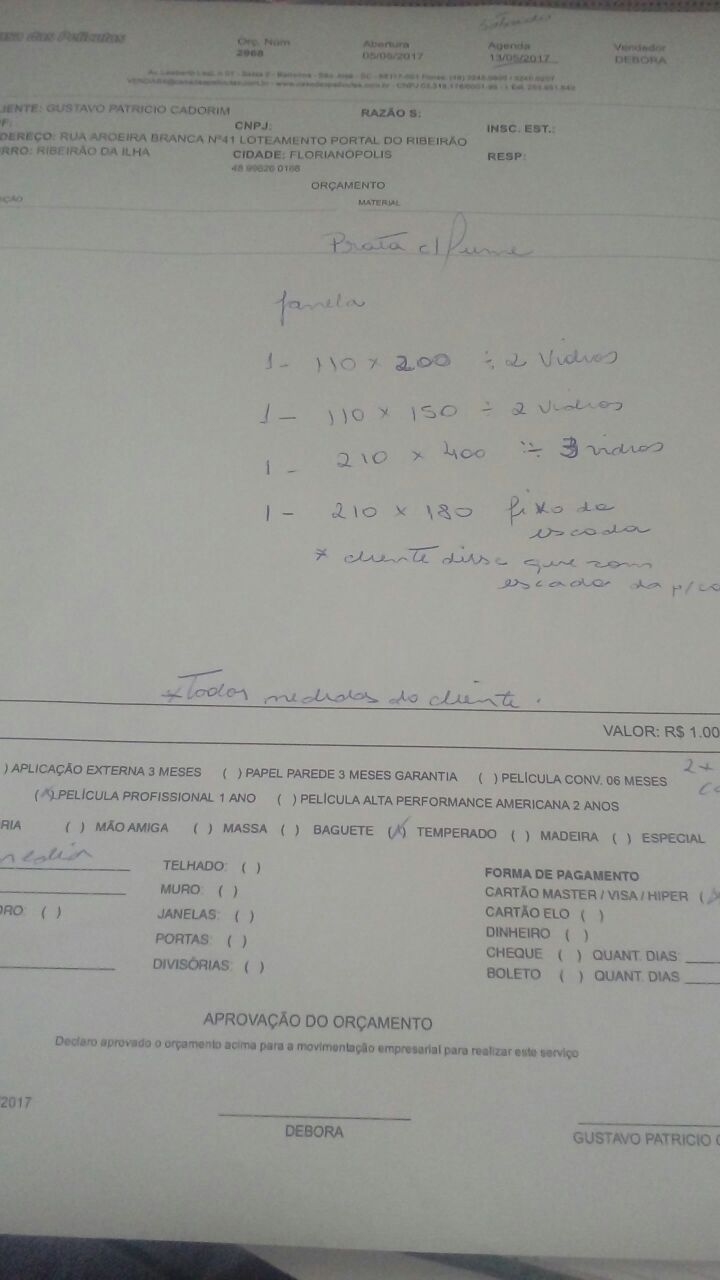 Orç. Num Abertura Agenda Vendedor
2968 05/06/2017 13/05/2017 DEBORA
IENTE: GUSTAVO PATRICIO CADORIM RAZÃO S:
F: CNPJ: INSC. EST.:
DEREÇO: RUA AROEIRA BRANCA Nº41 LOTEAMENTO PORTAL DO RIBEIRÃO
RRO: RIBEIRÃO DA ILHA CIDADE: FLORIANÓPOLIS RESP:
48 99620 0168
ORÇAMENTO
MATERIAL
Prata c/ fume
Janela
1 - 110 x 200 ÷ 2 Vidros
1 - 110 x 150 ÷ 2 vidros
1 - 210 x 400 ÷ 3 vidros
1 - 210 x 180 fixo da
escada
* cliente disse que com
escada da p/ co
* Todas medidas do cliente.
VALOR: R$ 1.00
) APLICAÇÃO EXTERNA 3 MESES ( ) PAPEL PAREDE 3 MESES GARANTIA ( ) PELÍCULA CONV. 06 MESES 2x
(X) PELÍCULA PROFISSIONAL 1 ANO ( ) PELÍCULA ALTA PERFORMANCE AMERICANA 2 ANOS
RIA ( ) MÃO AMIGA ( ) MASSA ( ) BAGUETE (X) TEMPERADO ( ) MADEIRA ( ) ESPECIAL
TELHADO: ( ) FORMA DE PAGAMENTO
MURO: ( ) CARTÃO MASTER / VISA / HIPER (
DRO: ( ) JANELAS: ( ) CARTÃO ELO ( )
PORTAS: ( ) DINHEIRO ( )
DIVISÓRIAS: ( ) CHEQUE ( ) QUANT. DIAS:
BOLETO ( ) QUANT. DIAS
APROVAÇÃO DO ORÇAMENTO
Declaro aprovado o orçamento acima para a movimentação empresarial para realizar este serviço
/2017
DEBORA GUSTAVO PATRICIO C